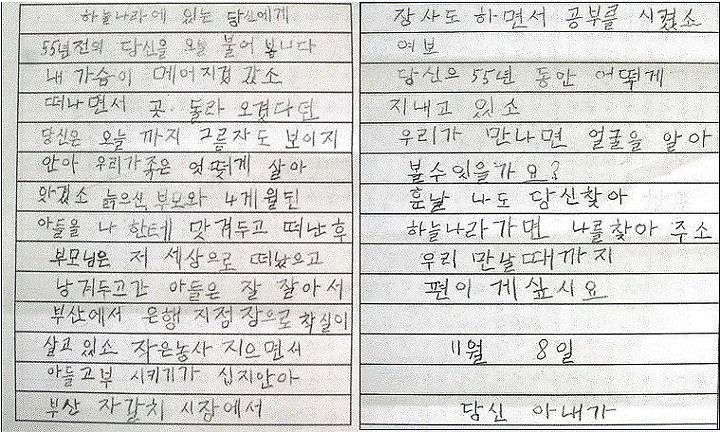 하늘나라에 있는 당신에게
55년전의 당신을 오늘 불어 봅니다
내 가슴이 메어지겁 갔소
떠나면서 곳· 돌라 오겠다던
당신은 오늘 까지 그름자도 보이지
안아 우리가족은 엇떻게 살아
왔겠소 늙으신 부모와 4게월된
아들을 나 한테 맛겨두고 떠난후
부모님은 저 세상으로 떠났으고
낭겨두고간 아들은 잘 잘아서
부산에서 은행 지점장으로 착실이
살고 있소 작은농사 지으면서
아들고부 시키기가 십지안아
부산 자갈치 시장에서
장사도 하면서 공부를 시켰소
여보
당신으 55년 동안 어떻게
지내고 있소
우리가 만나면 얼굴을 알아
볼수있을가요?
훈날 나도 당신찾아
하늘나라가면 나를찾아 주소
우리 만날때까지
편이 게싶시요
11월 8일
당신 아내가